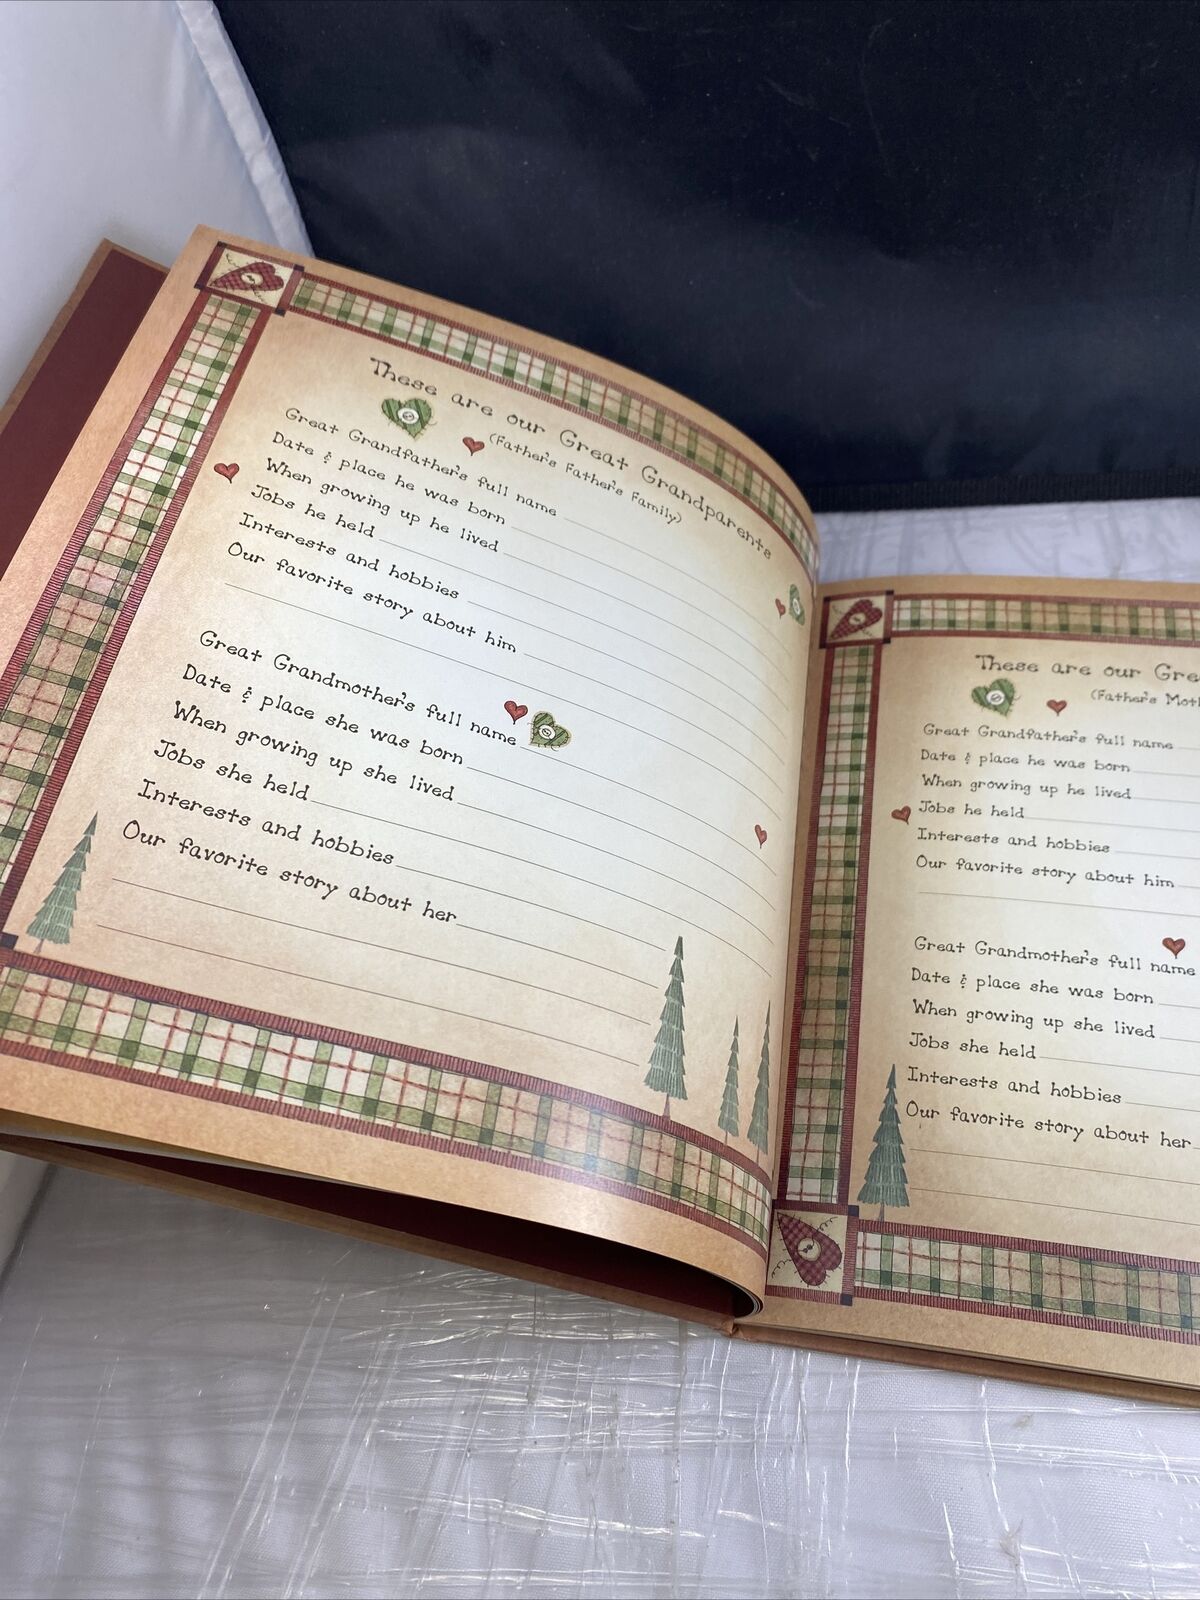 These are our Great Grandparents
(Father's Father's Family)
Great Grandfather's full name
Date & place he was born
When growing up he lived
Jobs he held
Interests and hobbies
Our favorite story about him
Great Grandmother's full name
Date & place she was born
When growing up she lived
Jobs she held
Interests and hobbies
Our favorite story about her
These are our
(Father's
Great Grandfather's full name
Date & place he was born
When growing up he lived
Jobs he held
Interests and hobbies
Our favorite story about him
Great Grandmother's full name
Date & place she was born
When growing up she lived
Jobs she held
Interests and hobbies
Our favorite story about her